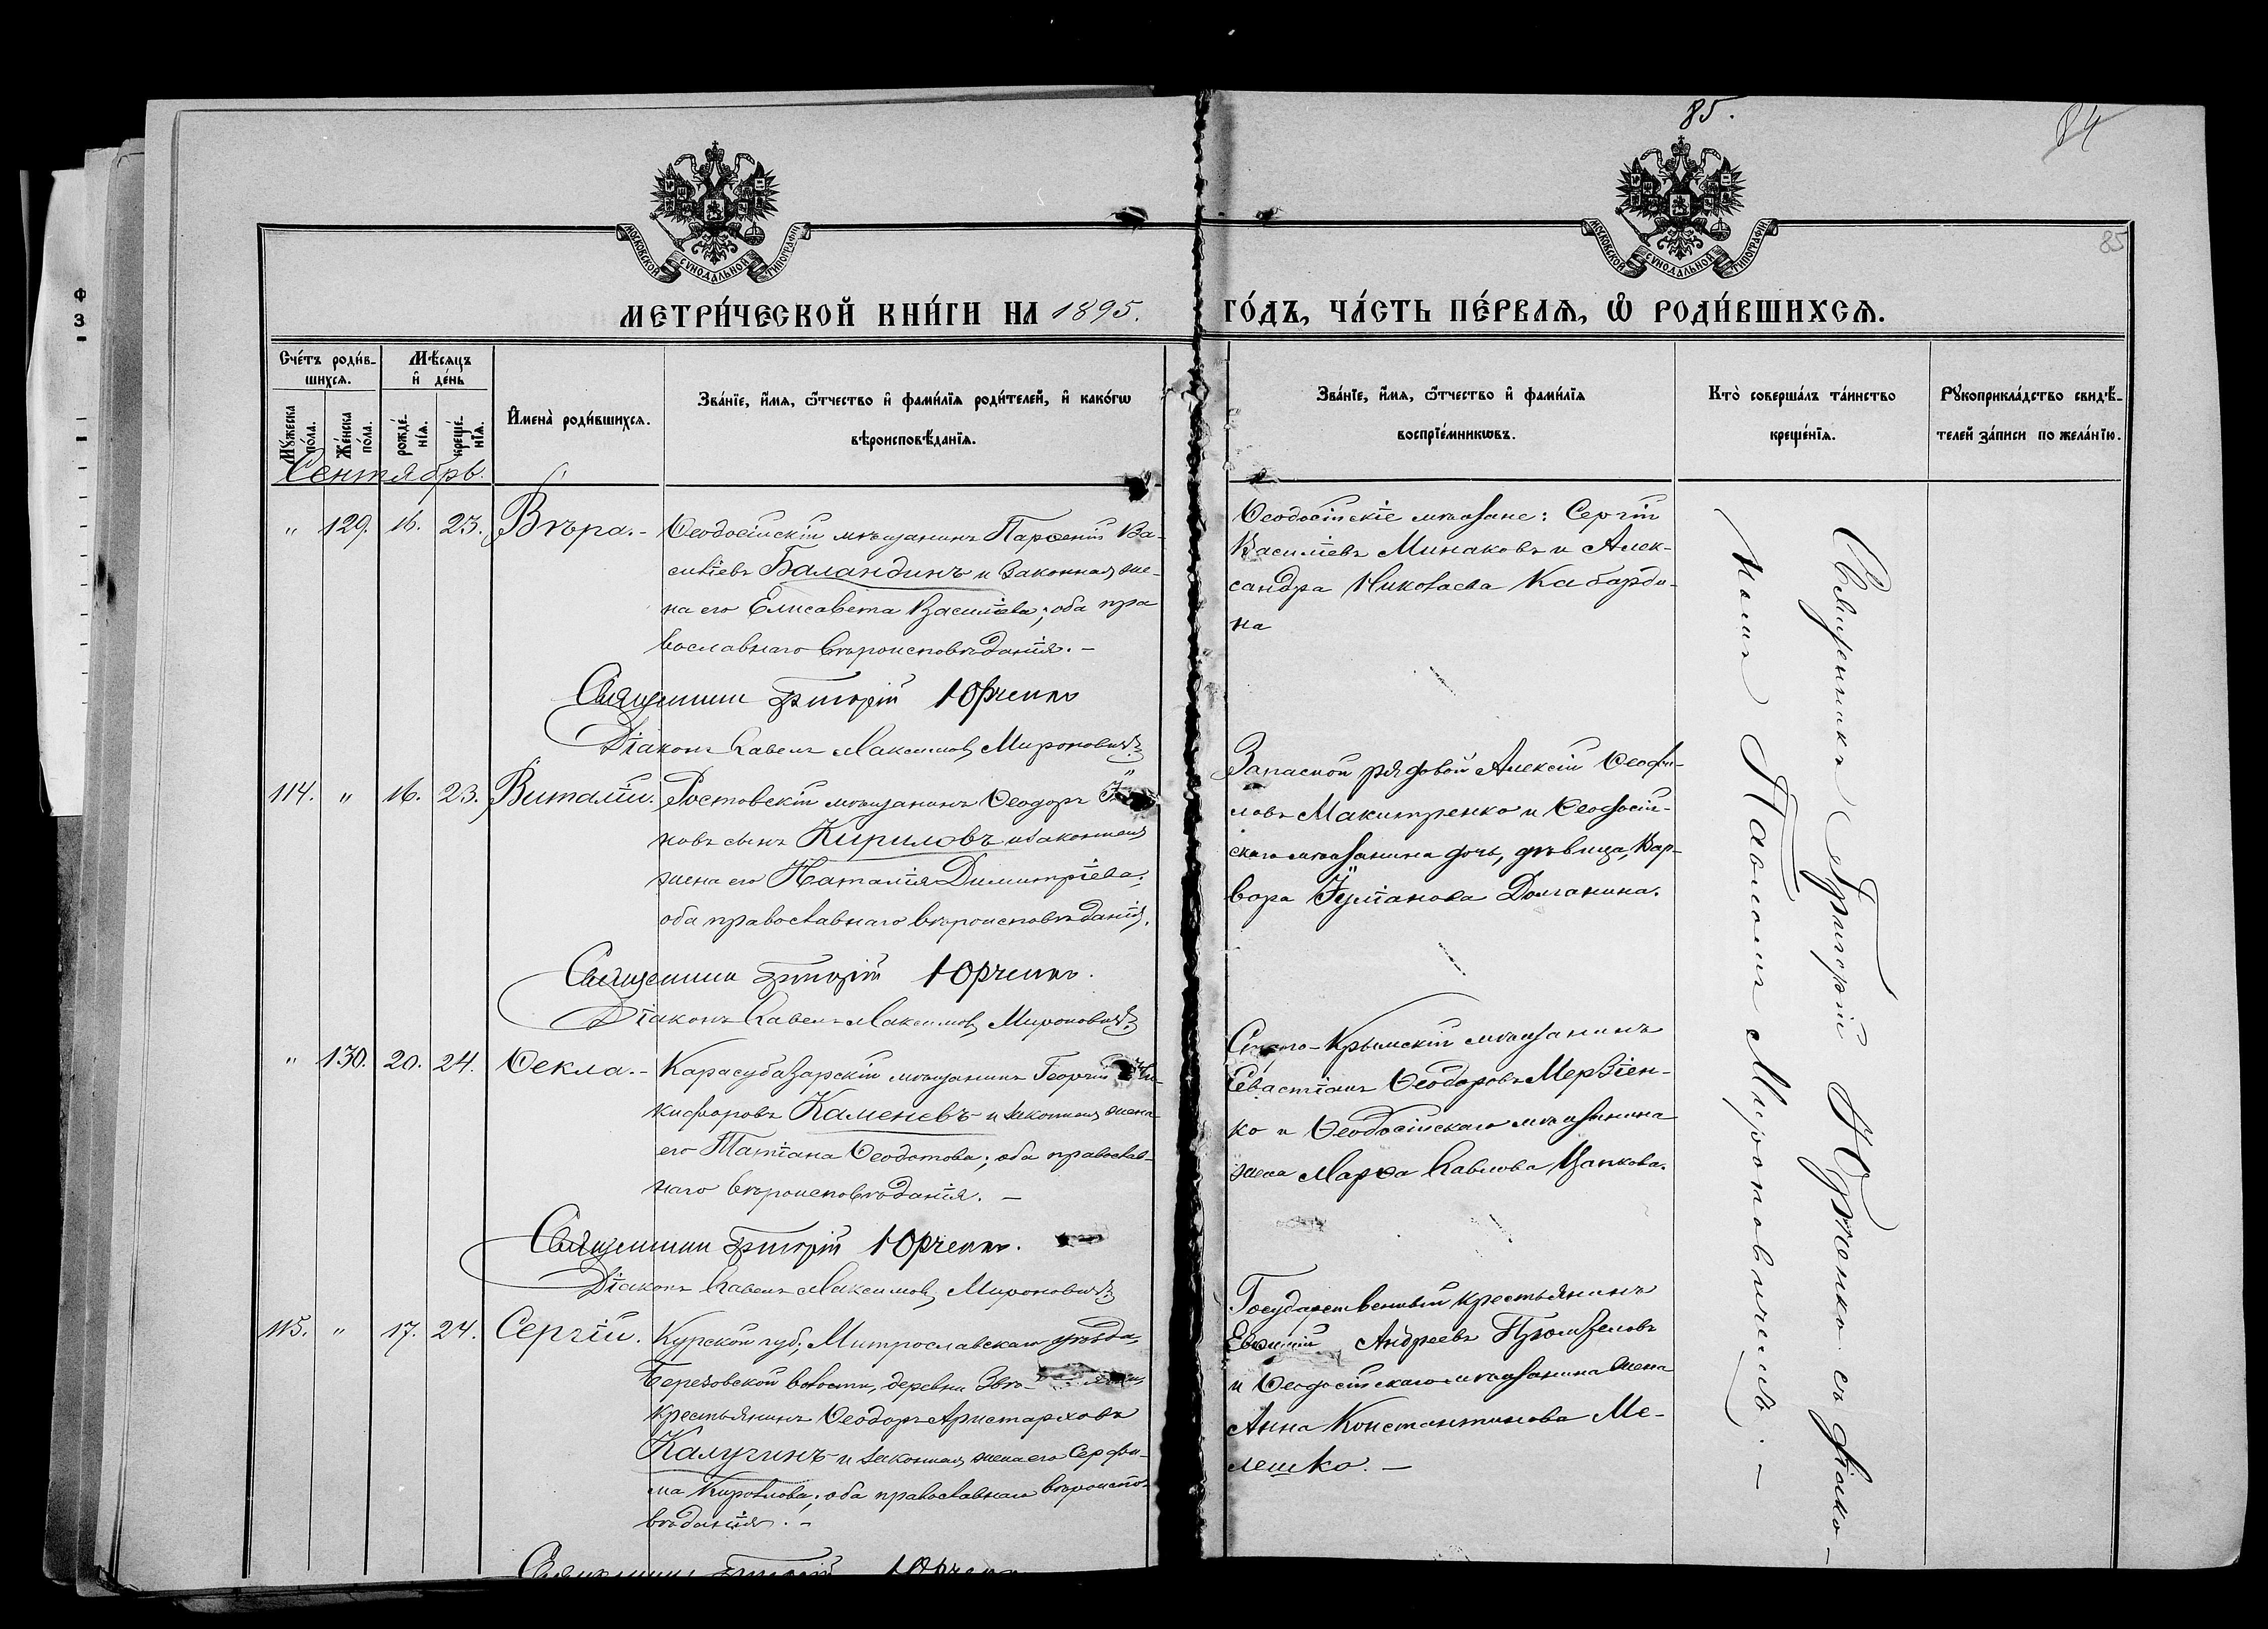 85.
84
85
МОСКОВСКОЙ СѴНОДАЛЬНОЙ ТИПОГРАФІИ
МОСКОВСКОЙ СѴНОДАЛЬНОЙ ТИПОГРАФІИ
МЕТРИ́ЧЕСКОЙ КНИ́ГИ НА 1895. ГО́ДЪ, ЧА́СТЬ ПЕ́РВАЯ, Ѡ РОДИ́ВШИХСЯ.
Сче́тъ роди́в-
шихся.
Мꙋжеска по́ла.
Же́нска по́ла.
Мѣ́сяцъ
и҆ де́нь
рожде́-
нїя.
креще́-
нїя.
И҆мена̀ роди́вшихся.
Зва́нїе, и҆́мя, ѻ҆́тчество и҆ фами́лїя роди́телей, и҆ како́гѡ
вѣроисповѣ́данїя.
Зва́нїе, и҆́мя, ѻ҆́тчество и҆ фами́лїя
воспрїе́мникѡвъ.
Кто̀ соверша́лъ та́инство
креще́нїя.
Рꙋкоприкла́дство свидѣ́-
телей за́писи по жела́нїю.
Сентябрь.
" 129. 16. 23. Вѣра.- Ѳеодосійскій мѣщанинъ Парѳеній Ва-
силіевъ Баландинъ и законная же-
на его Елисавета Василіева; оба пра
вославнаго вѣроисповѣданія. –
Священникъ Григорій Юрченко
Діаконъ Павелъ Максимов. Мироновичъ
Ѳеодосійскіе мѣщане: Сергій
Василіевъ Минаковъ и Алек-
сандра Николаева Кабарди-
на
114. " 16. 23. Виталій. Ростовскій мѣщанинъ Ѳеодоръ
новъ сынъ Кириловъ и законная
жена его Наталія Димитріева;
оба православнаго вѣроисповѣданія.
Священникъ Григорій Юрченко.
Діаконъ Павелъ Максимов. Мироновичъ
Запасной рядовой Алексій Ѳеофи-
ловъ Макитренко и Ѳеодосій-
скаго мѣщанина дочь, дѣвица, Вар-
вара Іуліанова Долганина.
" 130. 20. 24. Ѳекла.- Карасубазарскій мѣщанинъ Георгій Ни-
кифоровъ Каменевъ и законная жена
его Татіана Ѳеодотова; оба православ-
наго вѣроисповѣданія. –
Священникъ Григорій Юрченко.
Діаконъ Павелъ Максимов. Мироновичъ
Старо-Крымскій мѣщанинъ
Севастіанъ Ѳеодоровъ Мерзіен-
ко и Ѳеодосійскаго мѣщанина
жена Марѳа Павлова Цапкова.
115. " 17. 24. Сергій. Курской губ., Митрославскаго уѣзда,
Березовской волости, деревни
крестьянинъ Ѳеодоръ Аристарховъ
Калугинъ и законная жена его Серафи-
ма Кирилова; оба православнаго вѣроиспо-
вѣданія. –
Священникъ Григорій Юрченко
Государственный крестьянинъ
Евѳимій Андреевъ
и Ѳеодосійскаго мѣщанина жена
Анна Константинова Ме-
лешко. –
Священникъ Григорій Юрченко съ діако-
номъ Павломъ Мироновичемъ. –